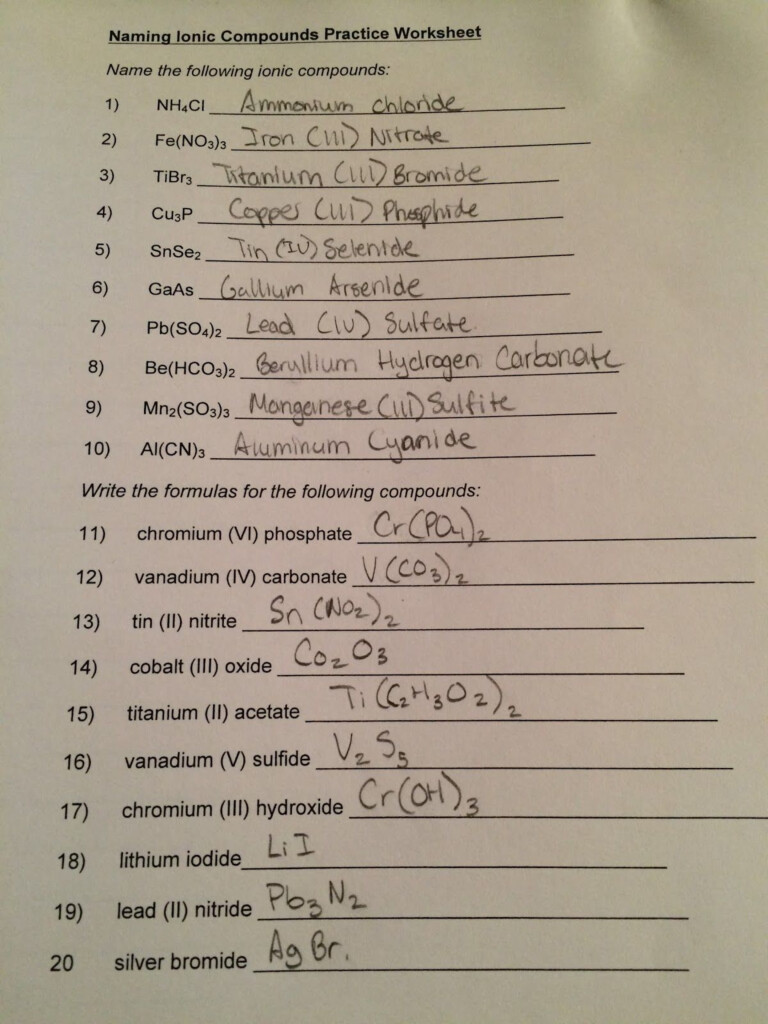 Naming Ionic Compounds Practice Worksheet
Name the following ionic compounds:
1) NH₄Cl Ammonium chloride
2) Fe(NO₃)₃ Iron (III) Nitrate
3) TiBr₃ Titanium (III) Bromide
4) Cu₃P Copper (III) Phosphide
5) SnSe₂ Tin (IV) Selenide
6) GaAs Gallium Arsenide
7) Pb(SO₄)₂ Lead (IV) Sulfate
8) Be(HCO₃)₂ Beryllium Hydrogen Carbonate
9) Mn₂(SO₃)₃ Manganese (III) Sulfite
10) Al(CN)₃ Aluminum Cyanide
Write the formulas for the following compounds:
11) chromium (VI) phosphate Cr(PO₄)₂
12) vanadium (IV) carbonate V(CO₃)₂
13) tin (II) nitrite Sn (NO₂)₂
14) cobalt (III) oxide Co₂O₃
15) titanium (II) acetate Ti(C₂H₃O₂)₂
16) vanadium (V) sulfide V₂S₅
17) chromium (III) hydroxide Cr(OH)₃
18) lithium iodide LiI
19) lead (II) nitride Pb₃N₂
20 silver bromide AgBr.